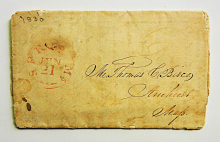 1836
JUN
21
Mr. Thomas C. Bisco
Amherst
Mass.